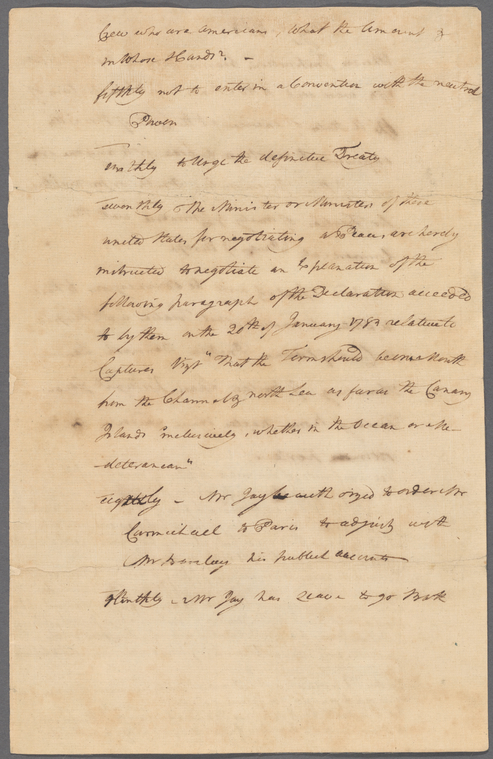 Crew who are Americans, What the Amount &
in Whose Hands? -
fifthly not to enter in a Convention with the neutral
Power
to Urge the definitive Treaty
seventhly The Minister or Ministers of these
united States for negotiating a Peace, are hereby
instructed to negotiate an Explanation of the
following paragraph of the Declaration acceeded
to by them on the 20th of January 1783 relative to
Captures Vizt "That the Term should be one Month
from the Channel & north Sea as far as the Canary
Islands inclusively, whether in the Ocean or Me-
-deteranean"
eighthly - Mr Jay be authorized to order Mr
Carmichael to Paris to adjust with
Mr Barclay his publick accounts
Ninthly - Mr Jay has Leave to go Bath